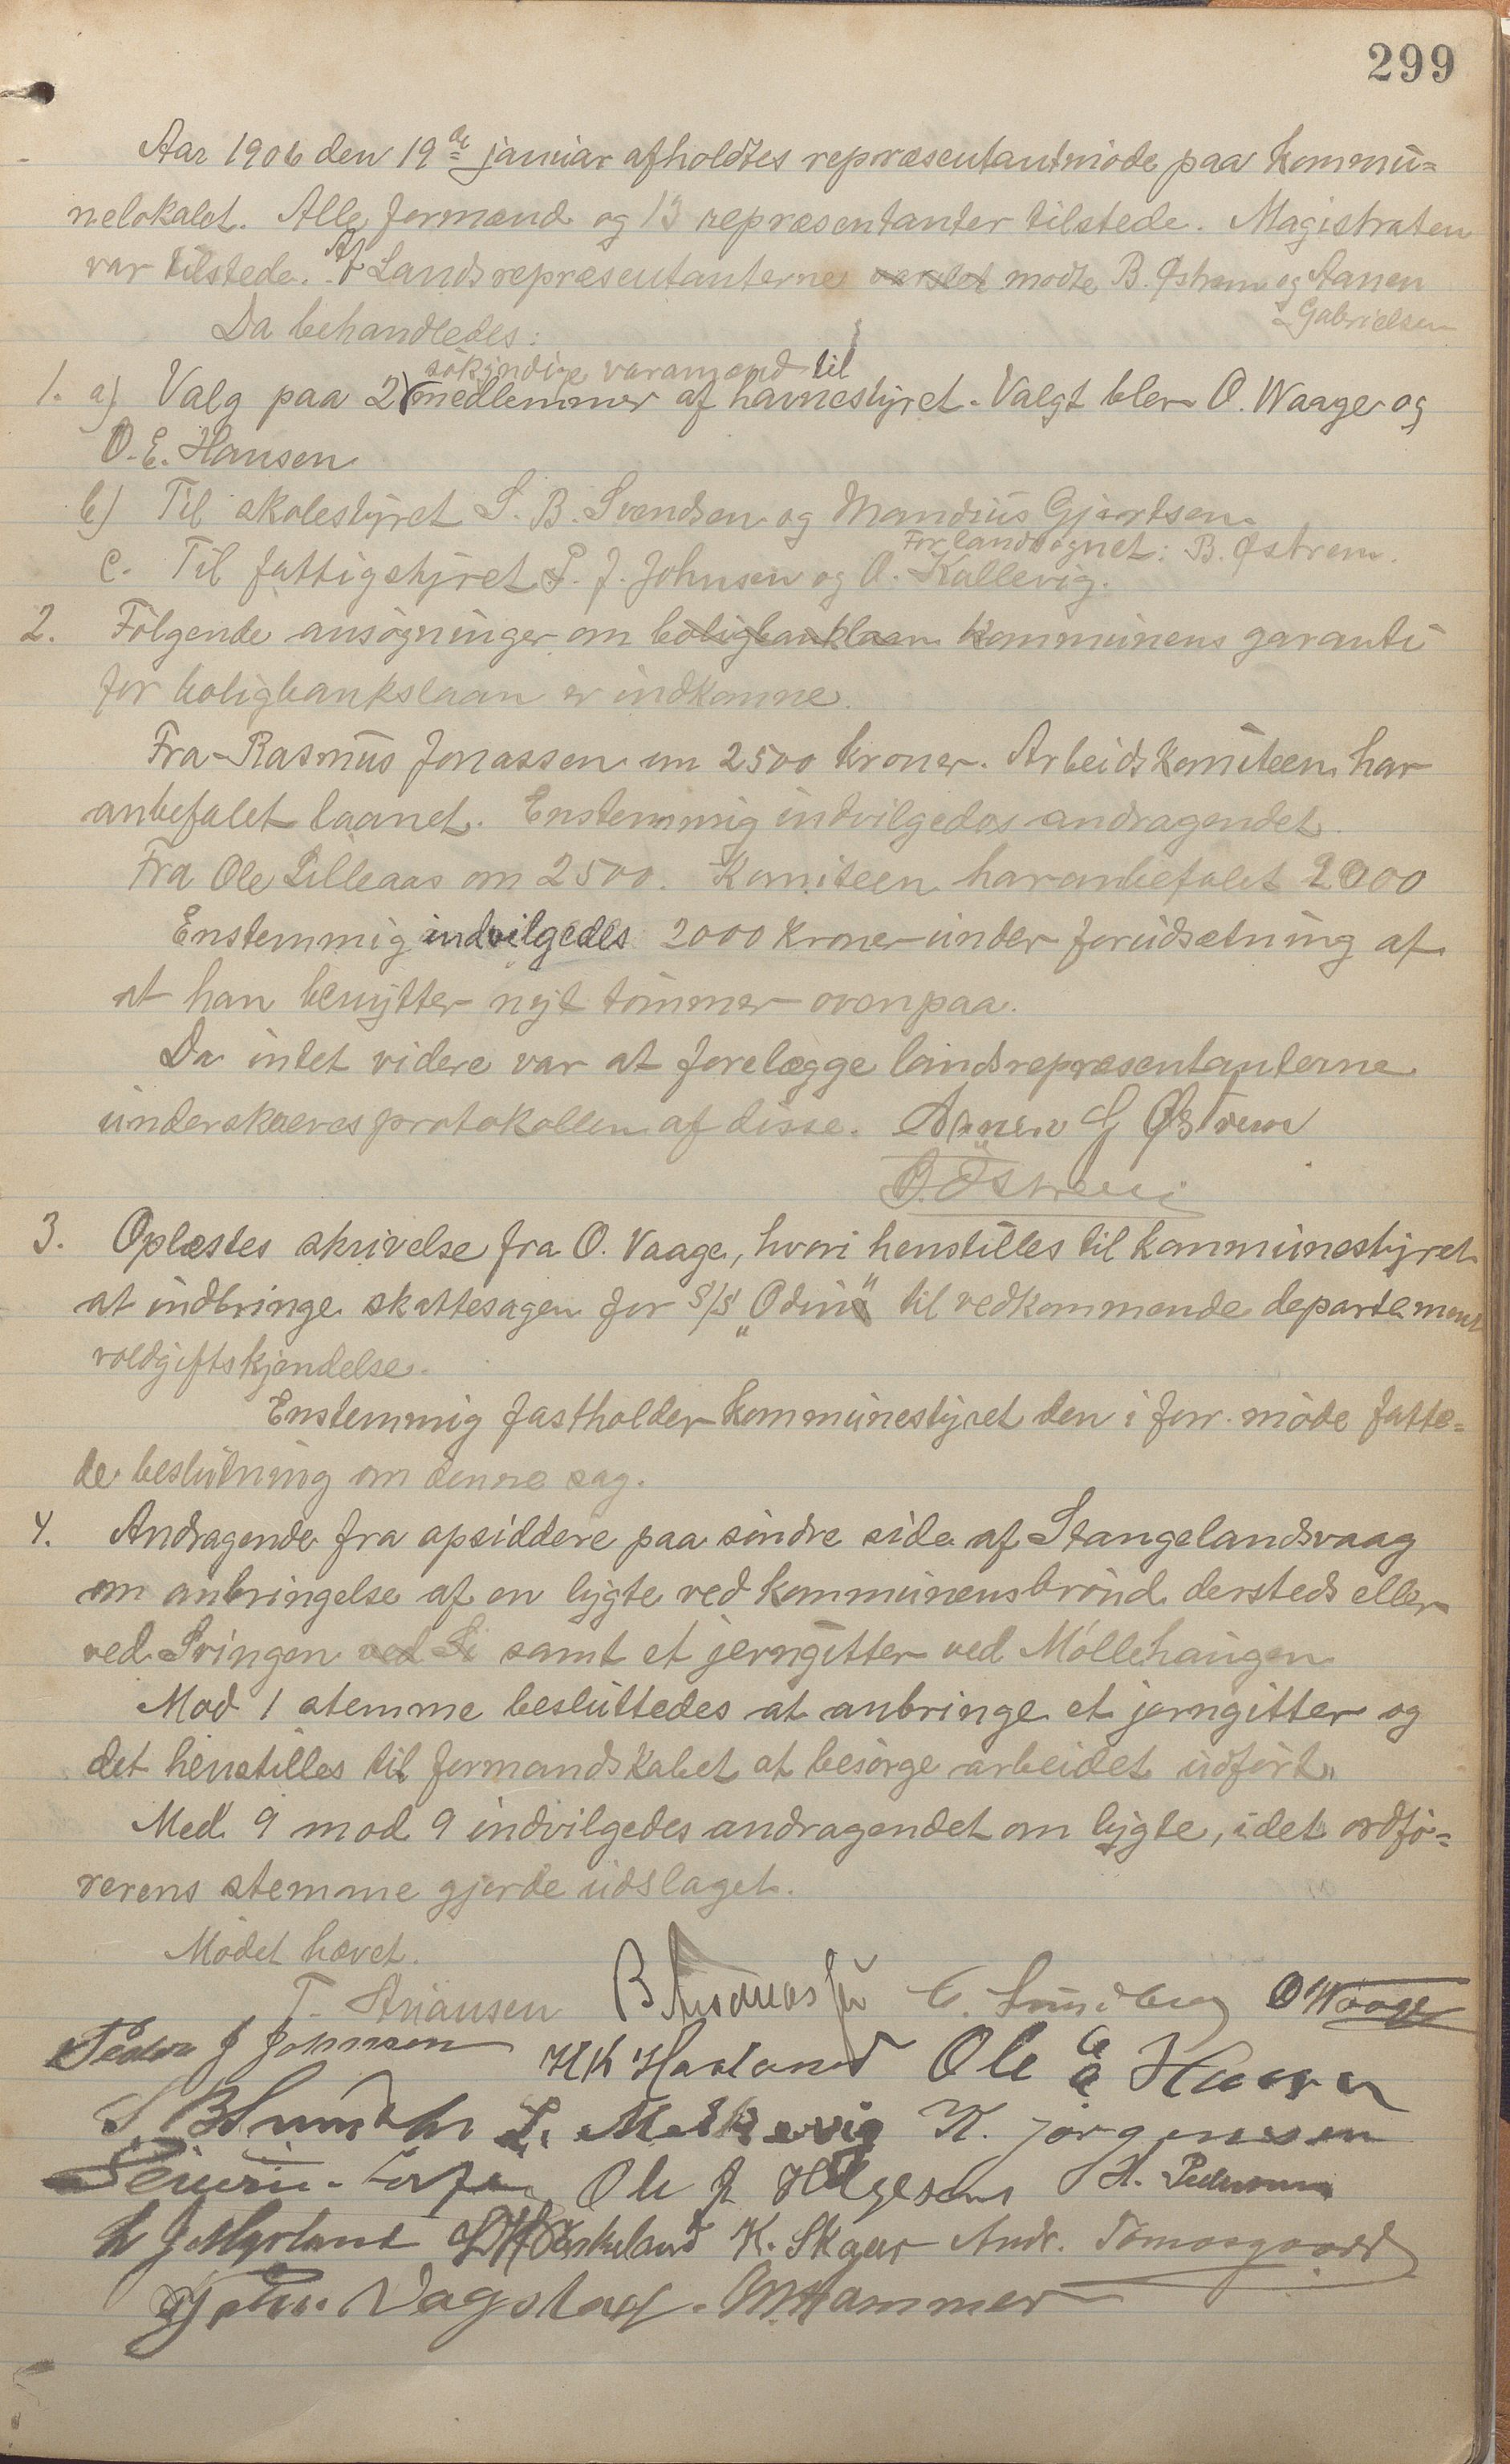 299
Aar 1906 den 19de januar afholdtes repræsentantmøde paa kommu=
nelokalet. Alle formænd og 13 repræsentanter tilstede. Magistraten
var tilstede. Af Landsrepræsentanterne mødte B. Østrem og Aanen
Gabrielsen
Da behandledes:
søkyndige varamænd til
1. a) Valg paa 2 medlemmer af havnestyret. Valgt blev O. Waage og
O. E. Hansen
b) Til skolestyret S. B. Svendsen og Mandius Gjertsen.
For landsognet: B. Østrem.
c. Til fattigstyret P. J. Johnsen og O. Kallevig.
2. Følgende ansøgninger om boligbanklaan kommunens garanti
for boligbankslaan er indkomne.
Fra Rasmus Jonassen om 2500 kroner. Arbeidskomiteen har
anbefalet laanet. Enstemmig indvilgedes andragendet.
Fra Ole Lilleaas om 2500. Komiteen har anbefalet 2000
Enstemmig indvilgedes 2000 kroner under forudsætning af
at han benytter nyt tømmer ovenpaa.
Da intet videre var at forelægge landsrepræsentanterne
underskreves protokollen af disse. Aanen G Østrem
B. Østrem
3. Oplæstes skrivelse fra O. Vaage, hvori henstilles til kommunestyret
at indbringe skattesagen for S/S "Odin" til vedkommende departement
voldgiftskjendelse.
Enstemmig fastholder kommunestyret den i forr. møde fatte=
de beslutning om denne sag.
4. Andragende fra opsiddere paa søndre side af Stangelandsvaag
om anbringelse af en lygte ved kommunens brønd dersteds eller
ved Svingen ved St samt et jerngitter ved Møllehaugen
Mod 1 stemme besluttedes at anbringe et jerngitter og
det henstilles til formandskabet at besørge arbeidet udført.
Med 9 mod 9 indvilgedes andragendet om lygte, idet ordfø=
rerens stemme gjorde udslaget.
Mødet hævet.
T. C. Lundberg O Waage
Peder J Johnsen H K Hauland Ole E Hansen
S B L. Medhaug K. Jørgensen
Ole J Helgesen H. Pedersen
L J Myrland K. Skaar Andr. Tomasgaard
John Vagstad. Hammer